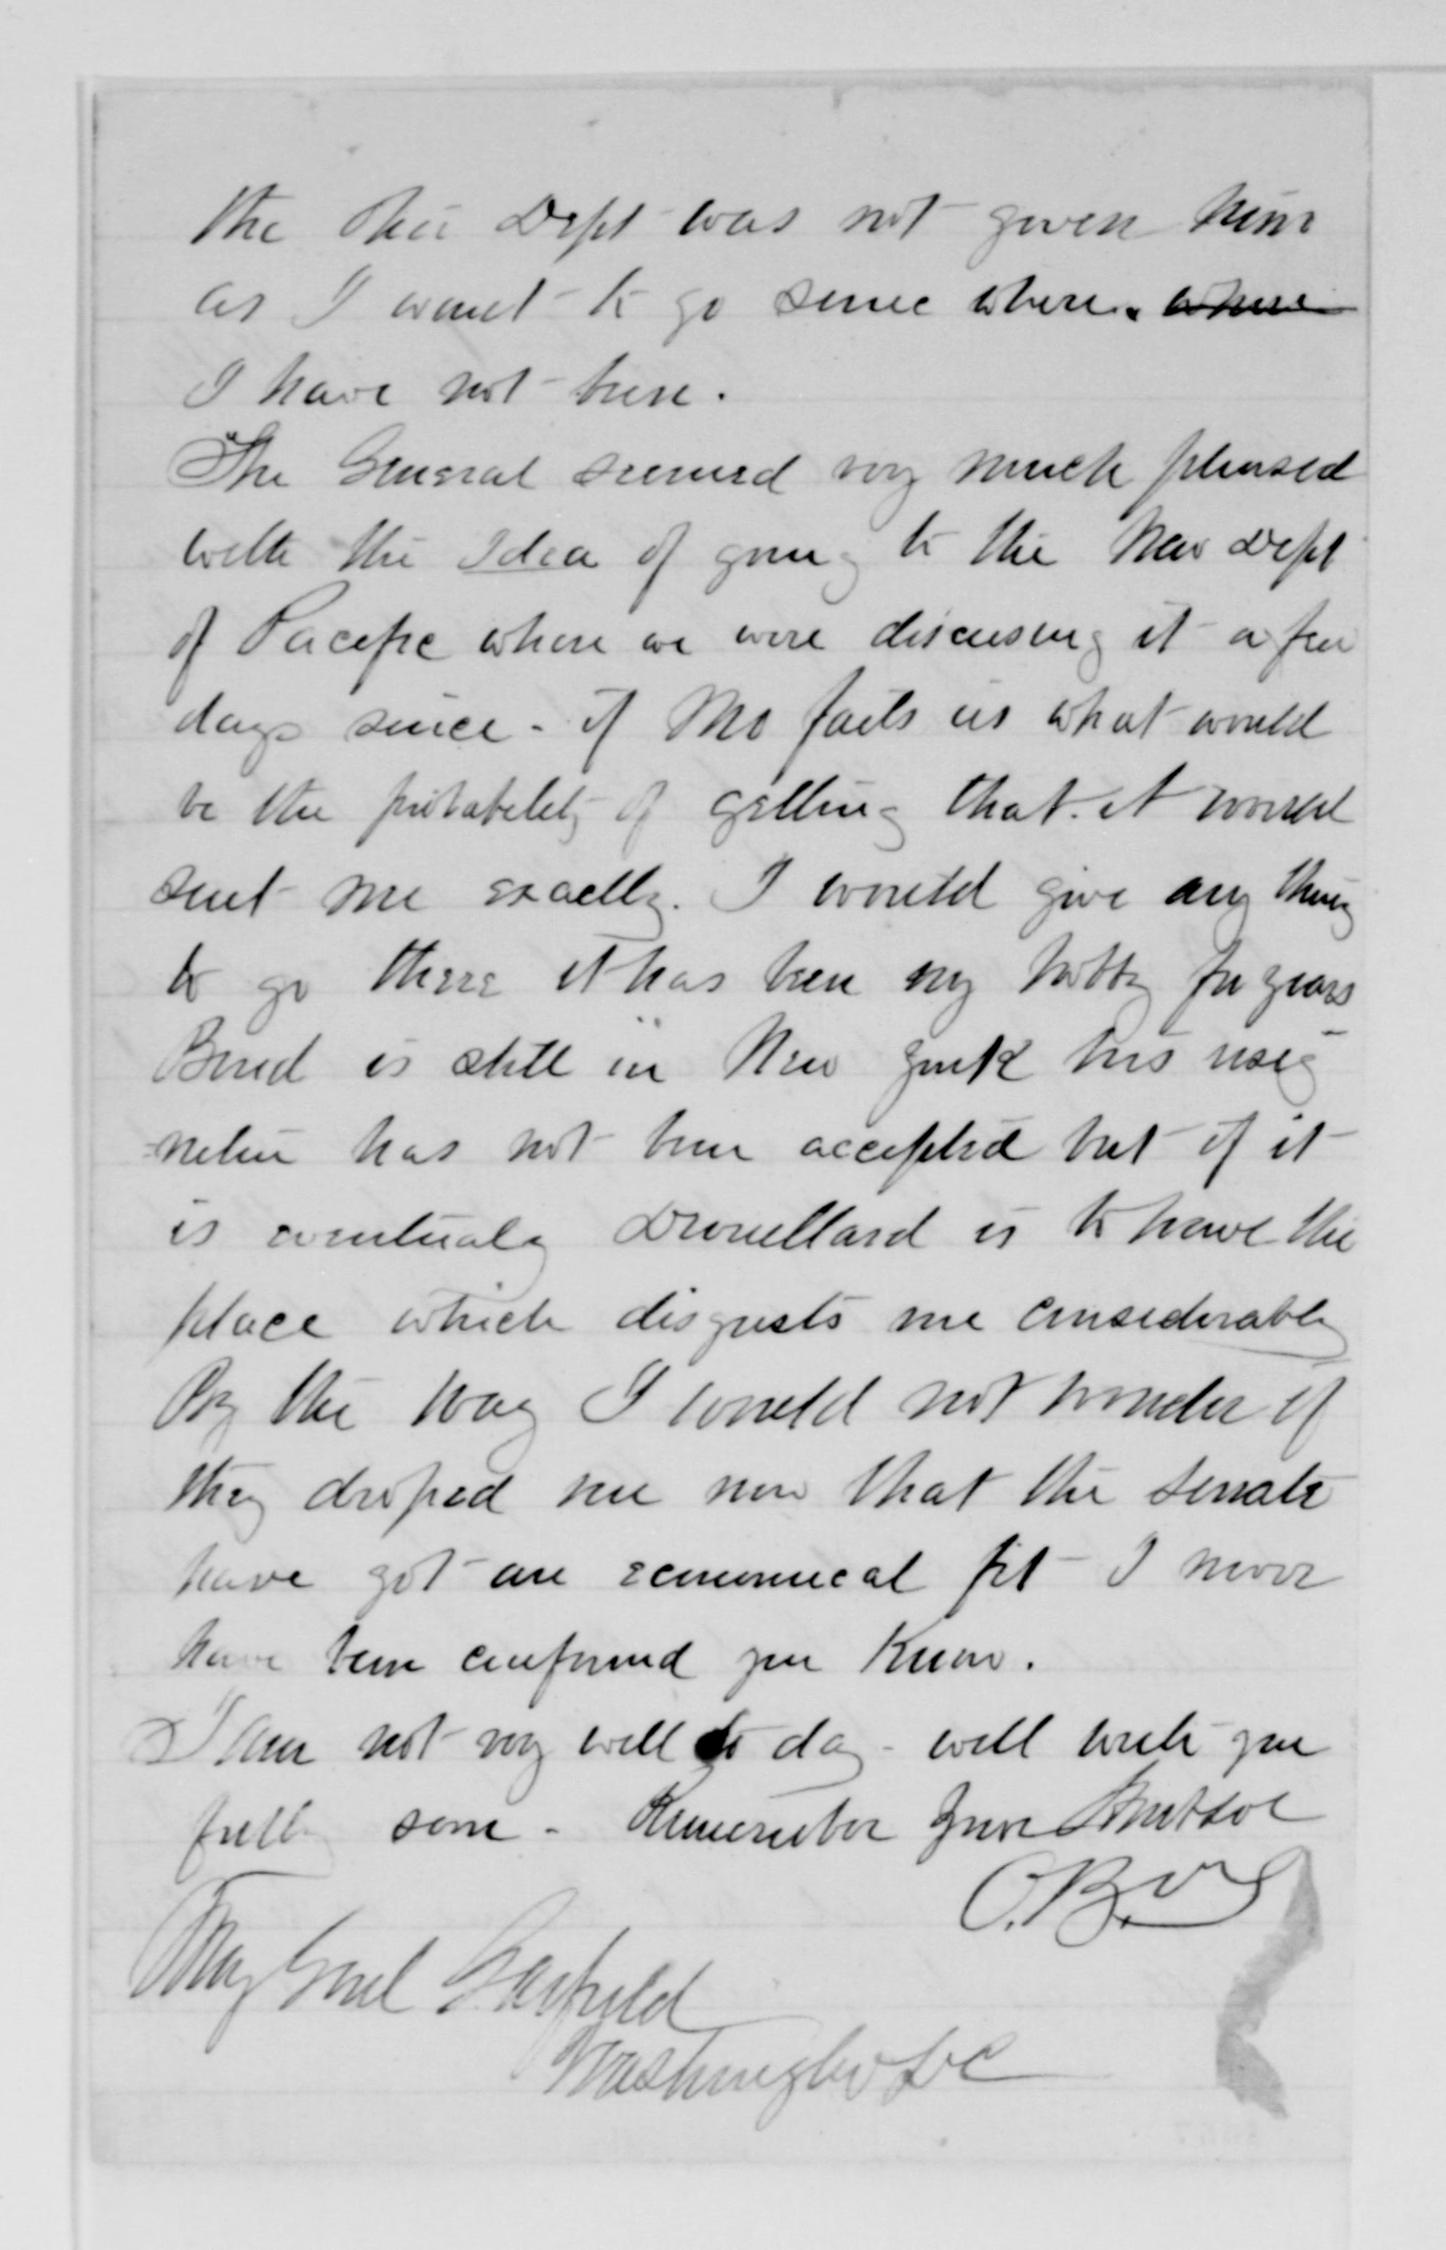 the Mo Dept was not given him
as I want to go some where. where
I have not been.
The General seemed very much pleased
with the Idea of going to the New Dept
of Pacific when we were discussing it a few
days since - if Mo fails us what would
be the probability of getting that. it would
suit me exactly. I would give any thing
to go there it has been my hobby for years
Bond is still in New York his resig
-nation has not been accepted but if it
is eventualy Drouillard is to have the
place which disgusts me considerably
By the way I would not wonder if
they droped me now that the senate
have got an economical fit I never
have been confirmed you Know.
I am not very well to day - will write you
fully soon - Remember your
Maj Genl Garfield
Washington DC